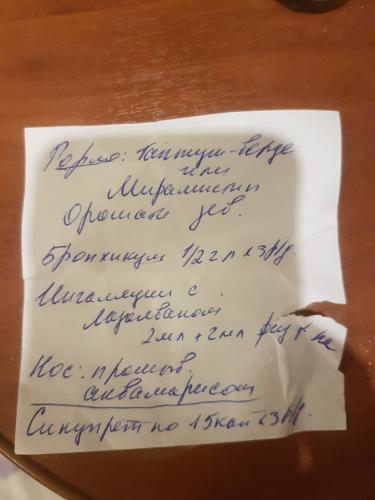 Горло: Тантум-верде
или
Мирамистин
Орошать зев.
Бронхикум 1/2 ч л х 3 р/д.
Ингаляции с
Лазолваном
2мл + 2мл физ р-ра
Нос: промыв.
аквамарисом
Синупрет по 15 кап х 3 р/д.